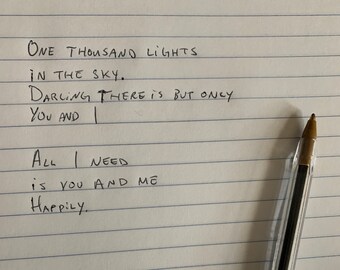 One thousand lights
in the sky.
Darling there is but only
You and I
All I need
is you and me
Happily.